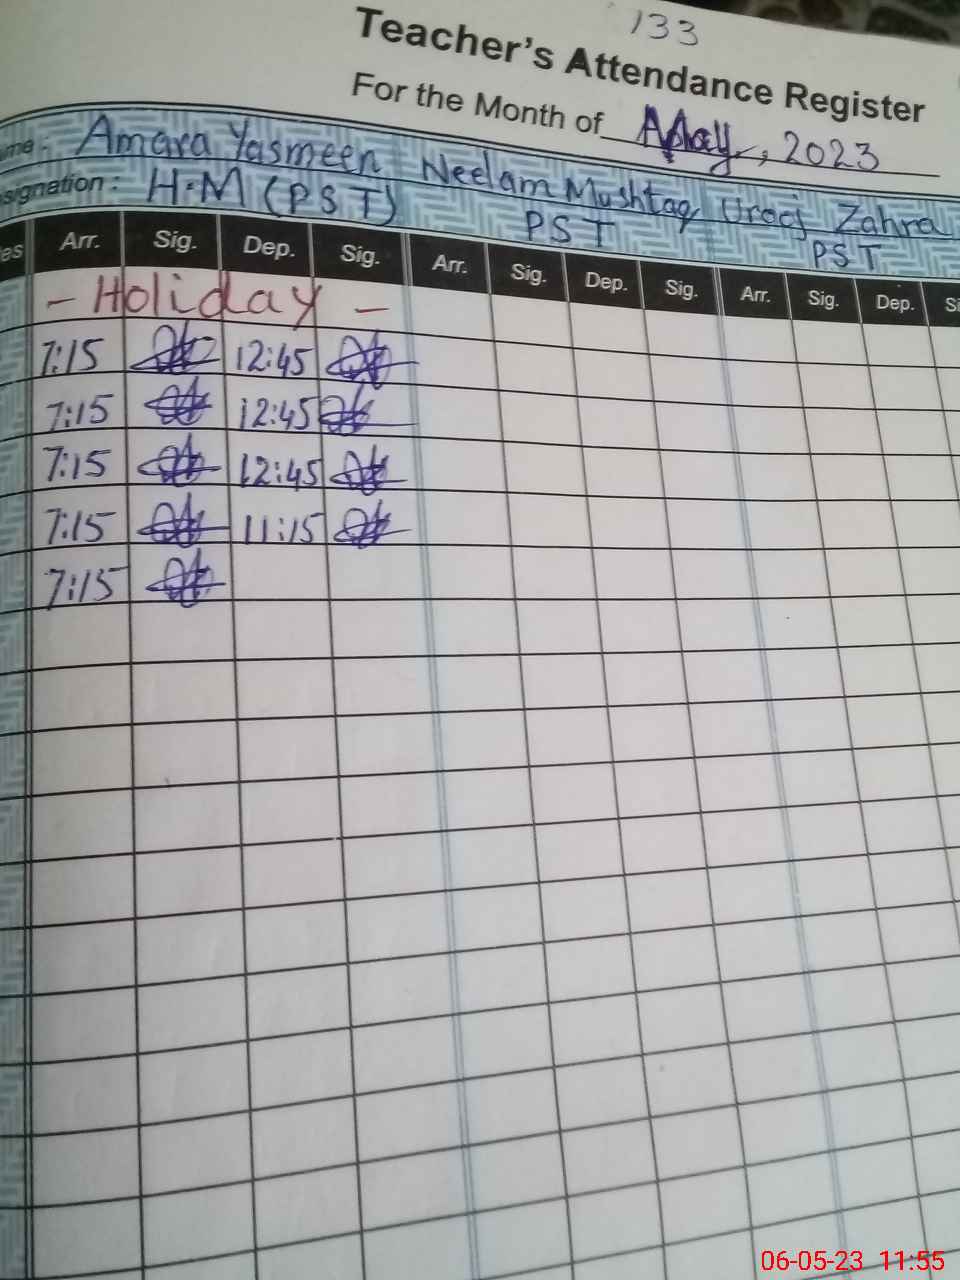 133
Teacher's Attendance Register
For the Month of May, 2023
me: Amara Yasmeen Neelam Mushtaq Urooj Zahra
signation: H.M (PST) PST PST
es Arr. Sig. Dep. Sig. Arr. Sig. Dep. Sig. Arr. Sig. Dep. Si
- Holiday -
7:15 12:45
7:15 12:45
7:15 12:45
7:15 11:15
7:15
06-05-23 11:55